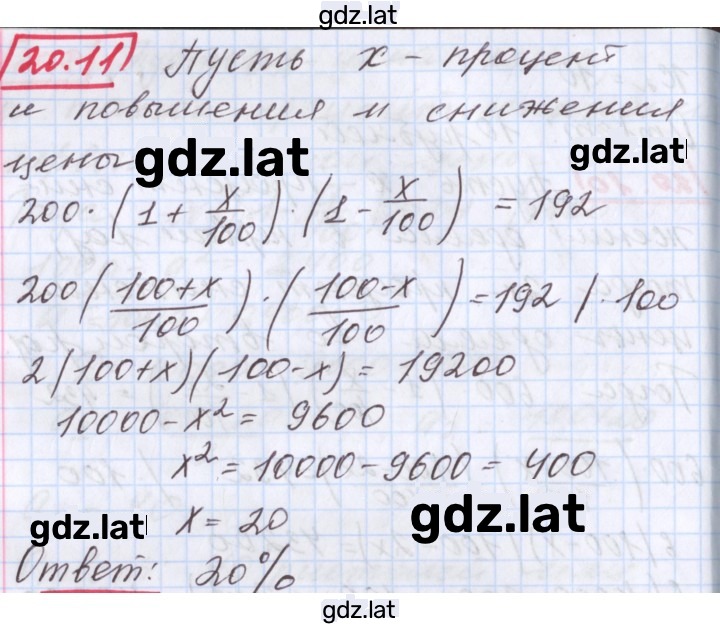 gdz.lat
20.11 Пусть x - процент
и повышения и снижения
цены gdz.lat gdz.lat
200 · (1 + x/100) · (1 - x/100) = 192
200 ((100+x)/100) · ((100-x)/100) = 192 / · 100
2(100+x)(100-x) = 19200
10000 - x² = 9600
x² = 10000 - 9600 = 400
gdz.lat x = 20 gdz.lat
Ответ: 20%
gdz.lat